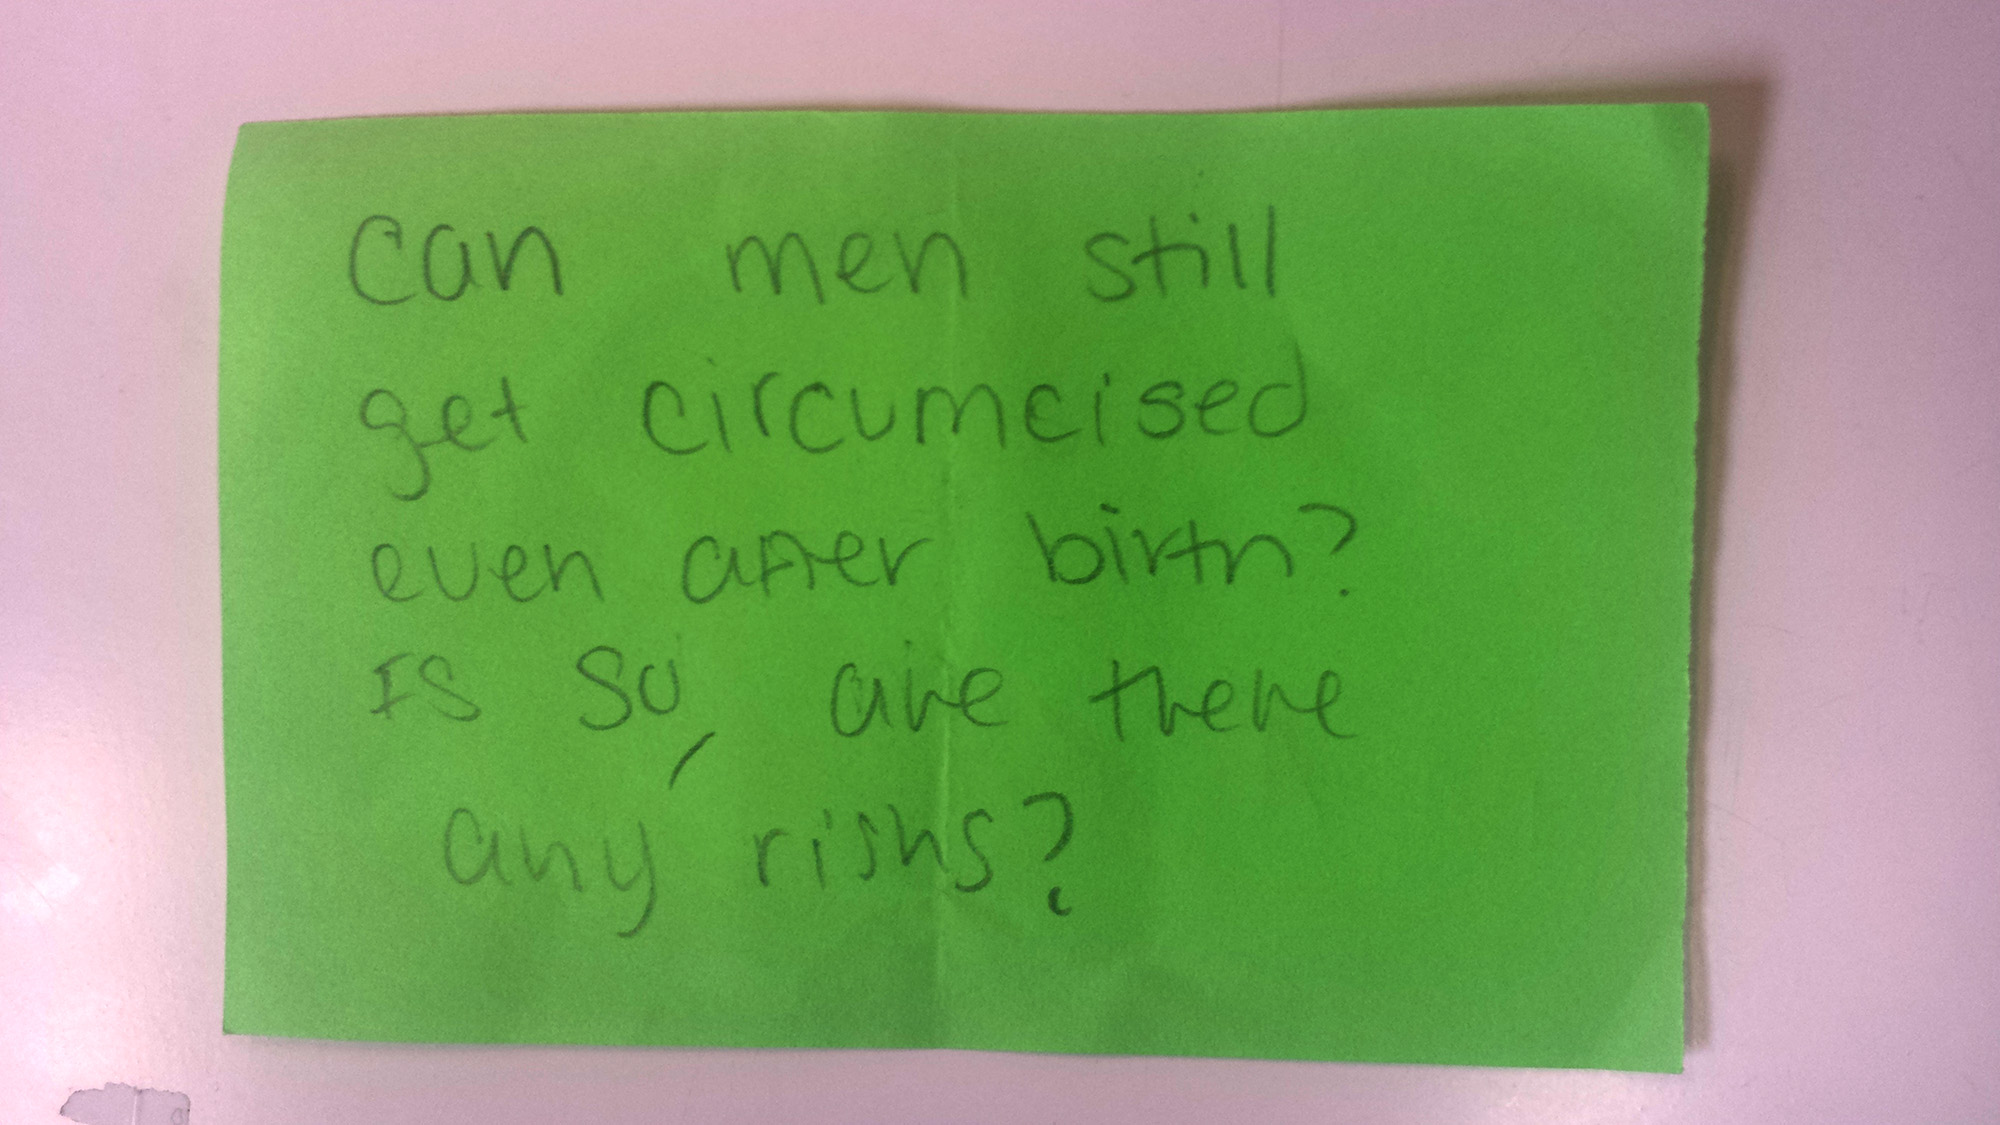 Can men still
get circumcised
even after birth?
Is so, are there
any risks?